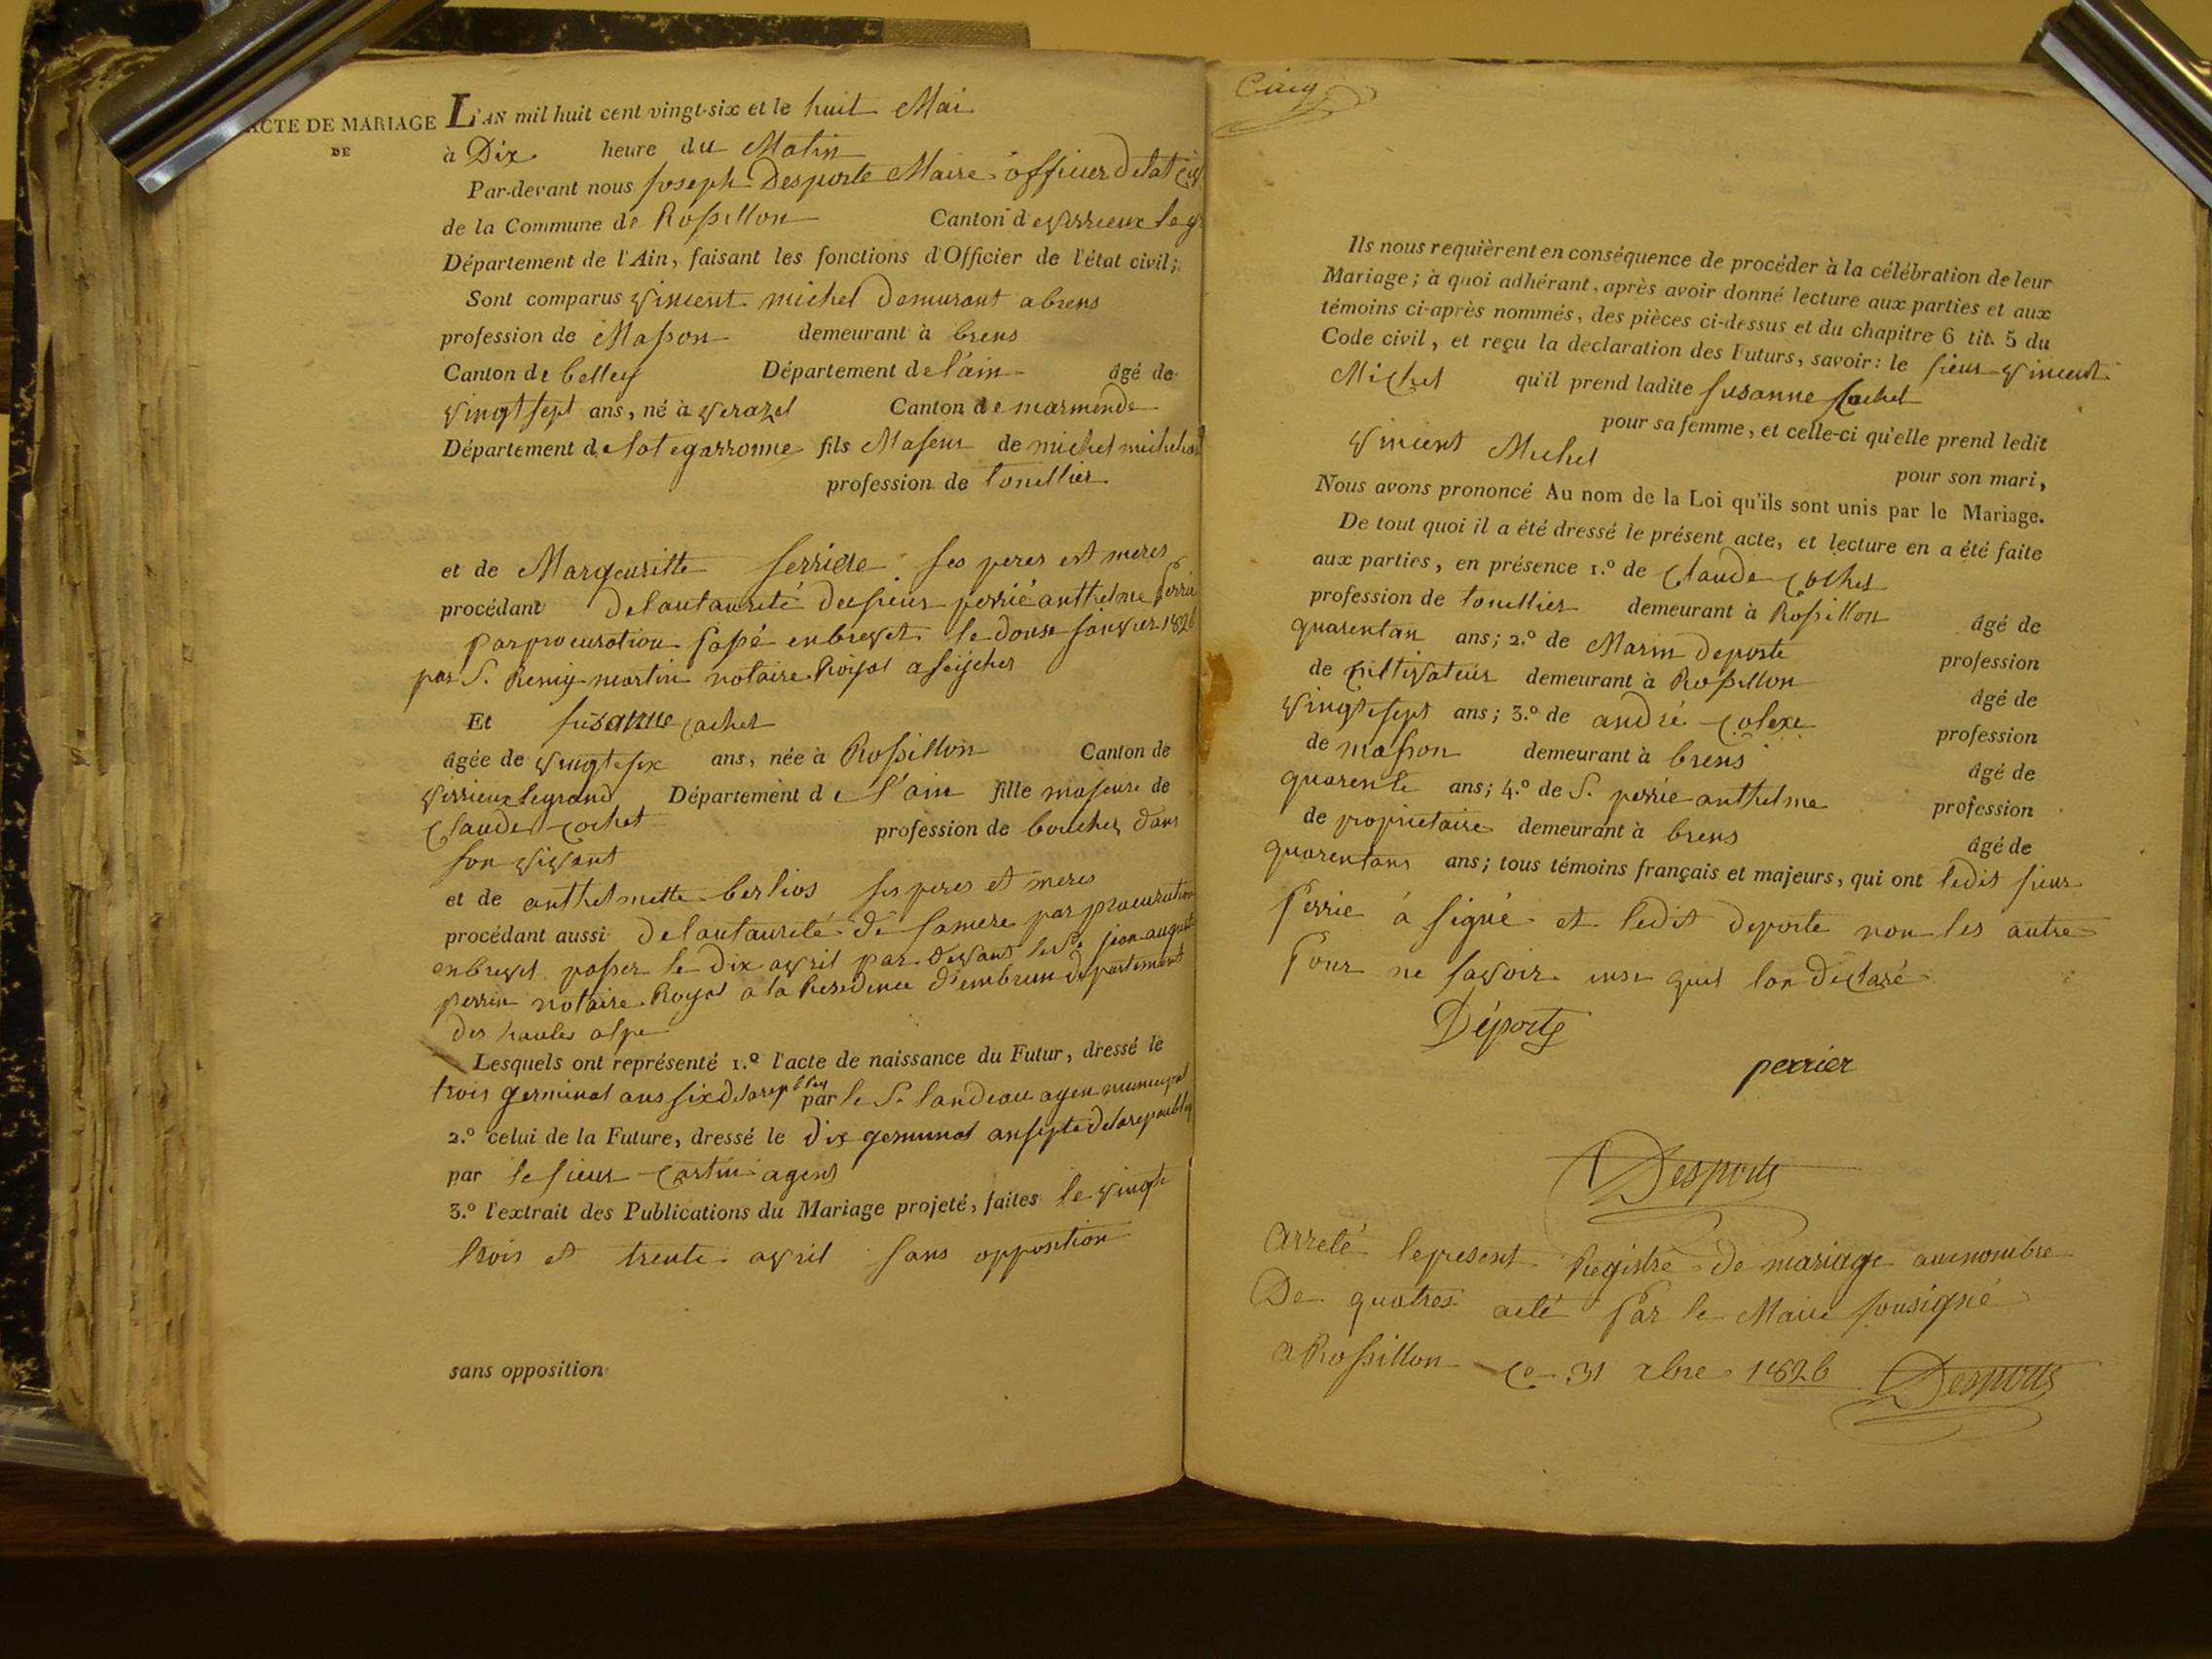 ACTE DE MARIAGE
DE
L'AN mil huit cent vingt-six et le huit Mai
à Dix heure du Matin
Par-devant nous joseph Desporte Maire officier delat civ
de la Commune de Rossillon Canton de virrieux le g
Département de l'Ain, faisant les fonctions d'Officier de l'état civil;
Sont comparus vincent michel demurant a brens
profession de Masson demeurant à brens
Canton de belley Département de l'ain âgé de
vingt sept ans, né à verazel Canton de marmende
Département de lot egarronne fils Majeur de michel michel
profession de tonellier
et de Margeuritte ferriere ses peres est meres
procédant delautaurité perrié anthelme
par procuration passé enbrevet le douse janvier 1826
par S. Remy martin notaire Royal a
Et susanne cochet
âgée de vingt six ans, née à Rossillon Canton de
virrieux legrand Département de l'ain fille majeure de
Claude cochet profession de boucher dans
son vivant
et de anthelmette berlios ses peres et meres
procédant aussi delautaurité de samere par procuration
enbrevet passer le dix avril par devant le Sr jean
perrin notaire Royal a la Residence d'embrun departement
des hautes alpe
Lesquels ont représenté 1.º l'acte de naissance du Futur, dressé le
trois germinal ans six delarep par le S. landeau agen municipal
2.º celui de la Future, dressé le dix germinal ansepte delarepoubliq
par le sieur agent
3.º l'extrait des Publications du Mariage projeté, faites le vingt
trois et trente avril sans opposition
sans opposition
Cinq
Ils nous requièrent en conséquence de procéder à la célébration de leur
Mariage; à quoi adhérant, après avoir donné lecture aux parties et aux
témoins ci-après nommés, des pièces ci-dessus et du chapitre 6 tit. 5 du
Code civil, et reçu la déclaration des Futurs, savoir: le sieur vincent
Michel qu'il prend ladite susanne Cochet
pour sa femme, et celle-ci qu'elle prend ledit
vincent Michel pour son mari,
Nous avons prononcé Au nom de la Loi qu'ils sont unis par le Mariage.
De tout quoi il a été dressé le présent acte, et lecture en a été faite
aux parties, en présence 1.º de Claude Cochet
profession de tonellier demeurant à Rossillon âgé de
quarentan ans; 2.º de Marin deporte profession
de cultivateur demeurant à Rossillon âgé de
vingtesept ans; 3.º de andré profession
de masson demeurant à brens âgé de
quarente ans; 4.º de S. perrié anthelme profession
de proprietaire demeurant à brens âgé de
quarentans ans; tous témoins français et majeurs, qui ont ledit sieur
Perrie á signé et ledit deporte non les autre
Pour ne savoir quil lon déclaré
Déporte
perrier
Desporte
Arreté lepresent Registre de mariage aunombre
De quatres acte Par le Maire sousigné
a Rossillon Ce 31 xbre 1826 Desporte